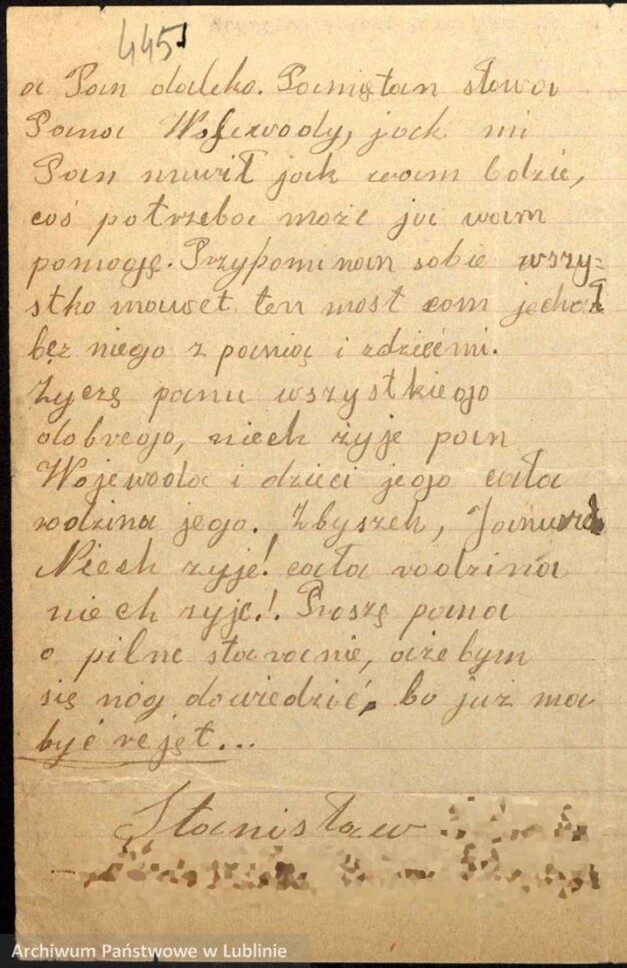 445
a Pan daleko. Pamiętam słowa
Pana Wojewody, jak mi
Pan muwił jak wam bdzie,
coś potrzeba może ja wam
pomogę. Przypominam sobie wszy=
stko nawet ten most com jechał
bez niego z panią i zdziećmi.
Życzę panu wszystkiego
dobrego, niech żyje pan
Wojewoda i dzieci jego cała
rodzina jego. Zbyszek,
Niech zyje! cała rodzina
niech zyje.! Proszę pana
o pilne staranie, ażebym
się nóg dowiedzić, bo już ma
być rejęt...
Stanisław
Archiwum Państwowe w Lublinie